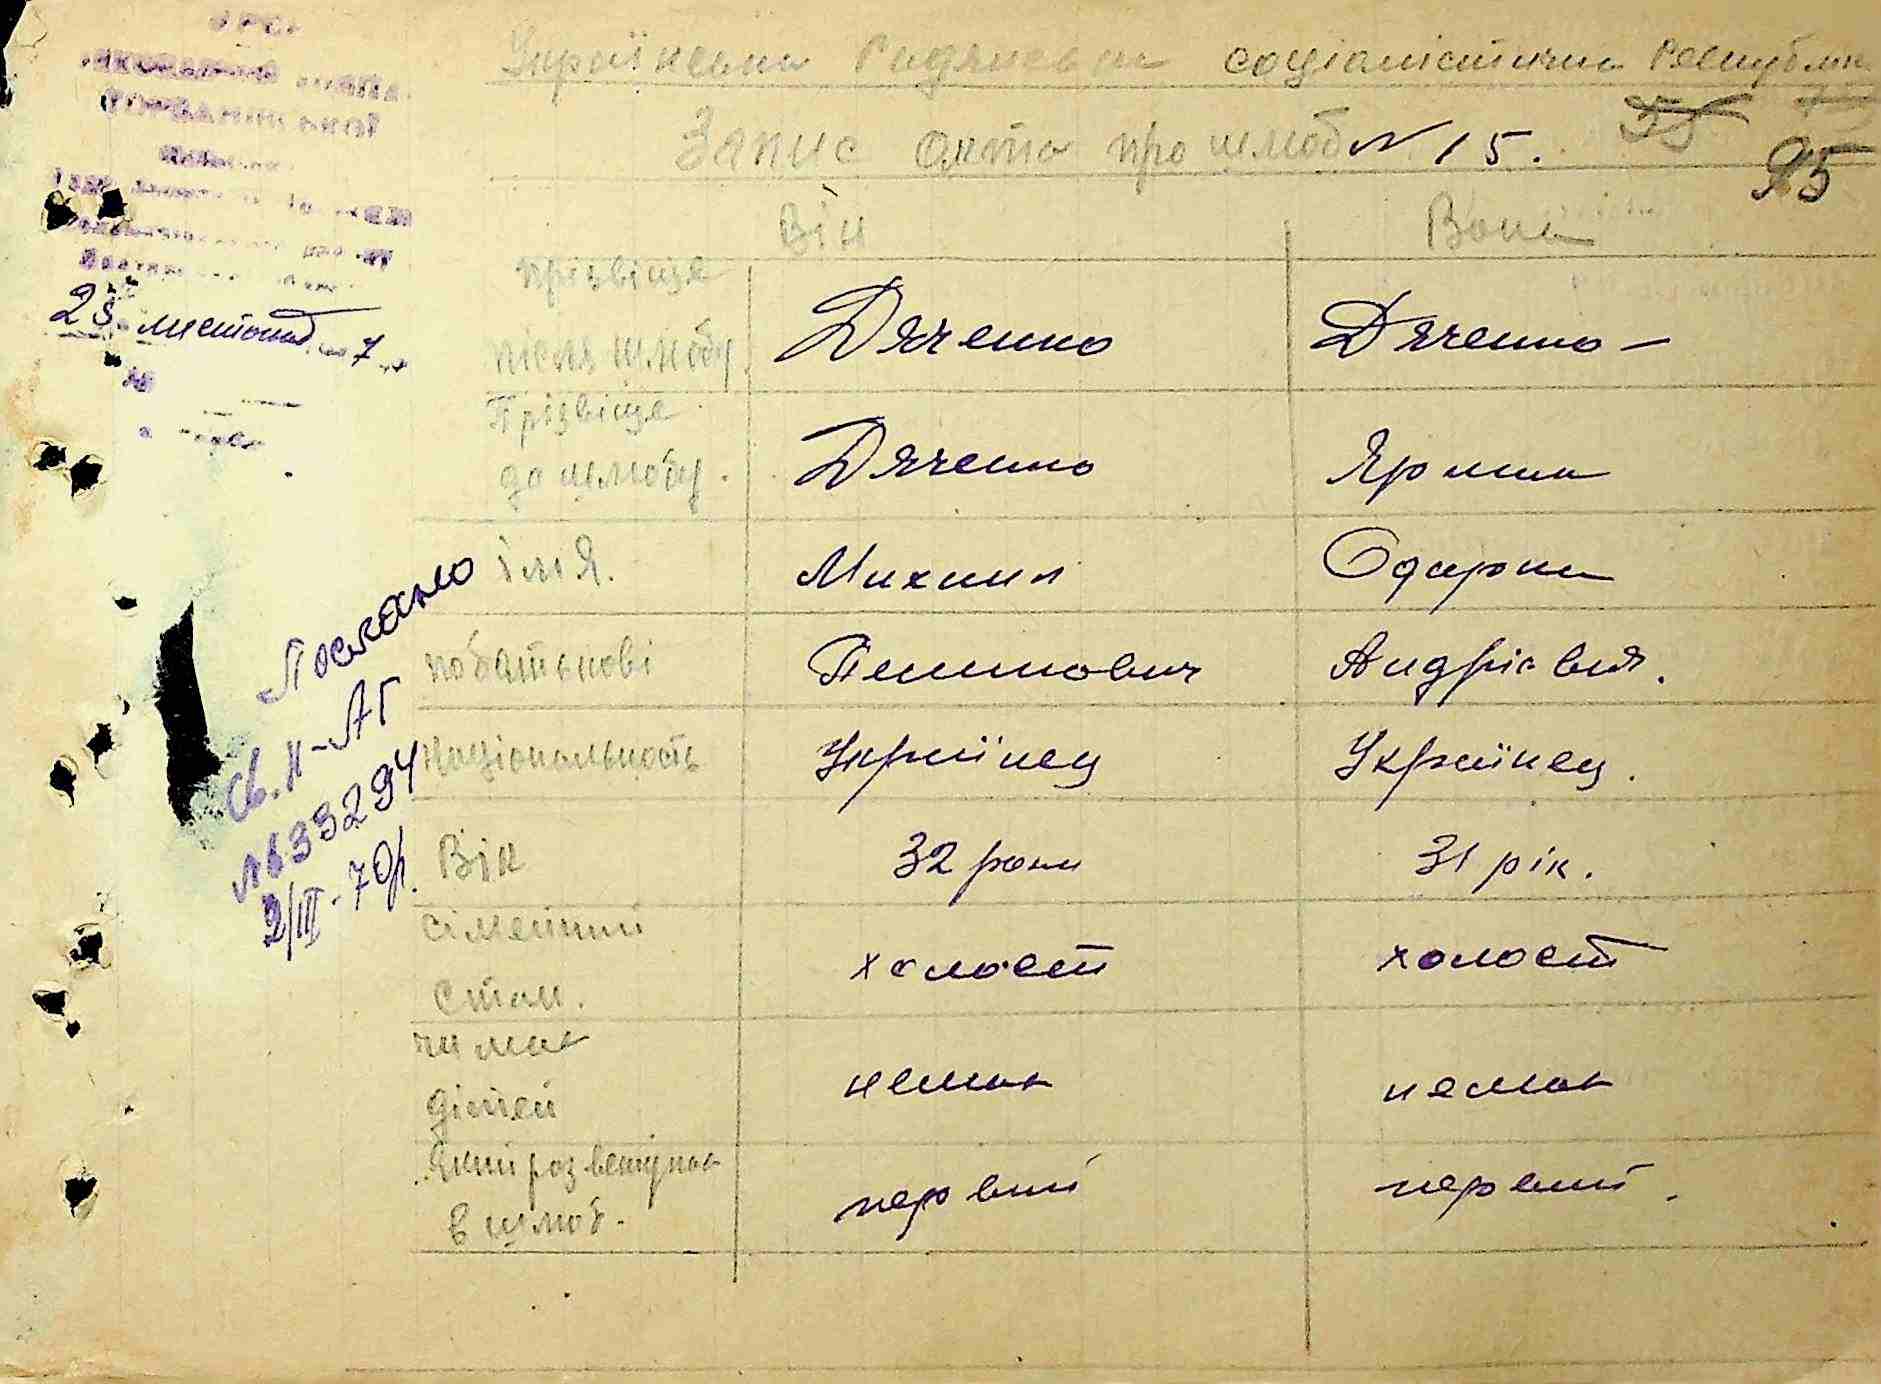 Українська Радянська соціалістична Республік
Запис акта про шлюб № 15.
95
Він Вона
прізвіще
після шлюбу Дяченко Дяченко –
Прізвіще
до шлюбу. Дяченко Ярошно
імя. Михаил Одарка
побатькові Пилипович Андрієвня.
Національность Українец Українец.
Вік 32 роки 31 рік.
сімейний
стан. холост холост
чи має
дітей немає немає
Який раз вступає
в шлюб. первий первий.
28 листопад 7
Послано
св. II-АГ
№ 633294
2/III-70р.